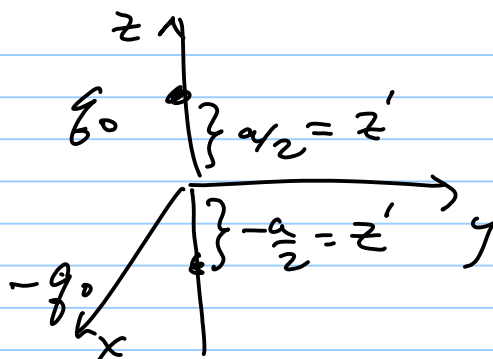 z
q₀
} a/2 = z'
y
} -a/2 = z'
-q₀
x